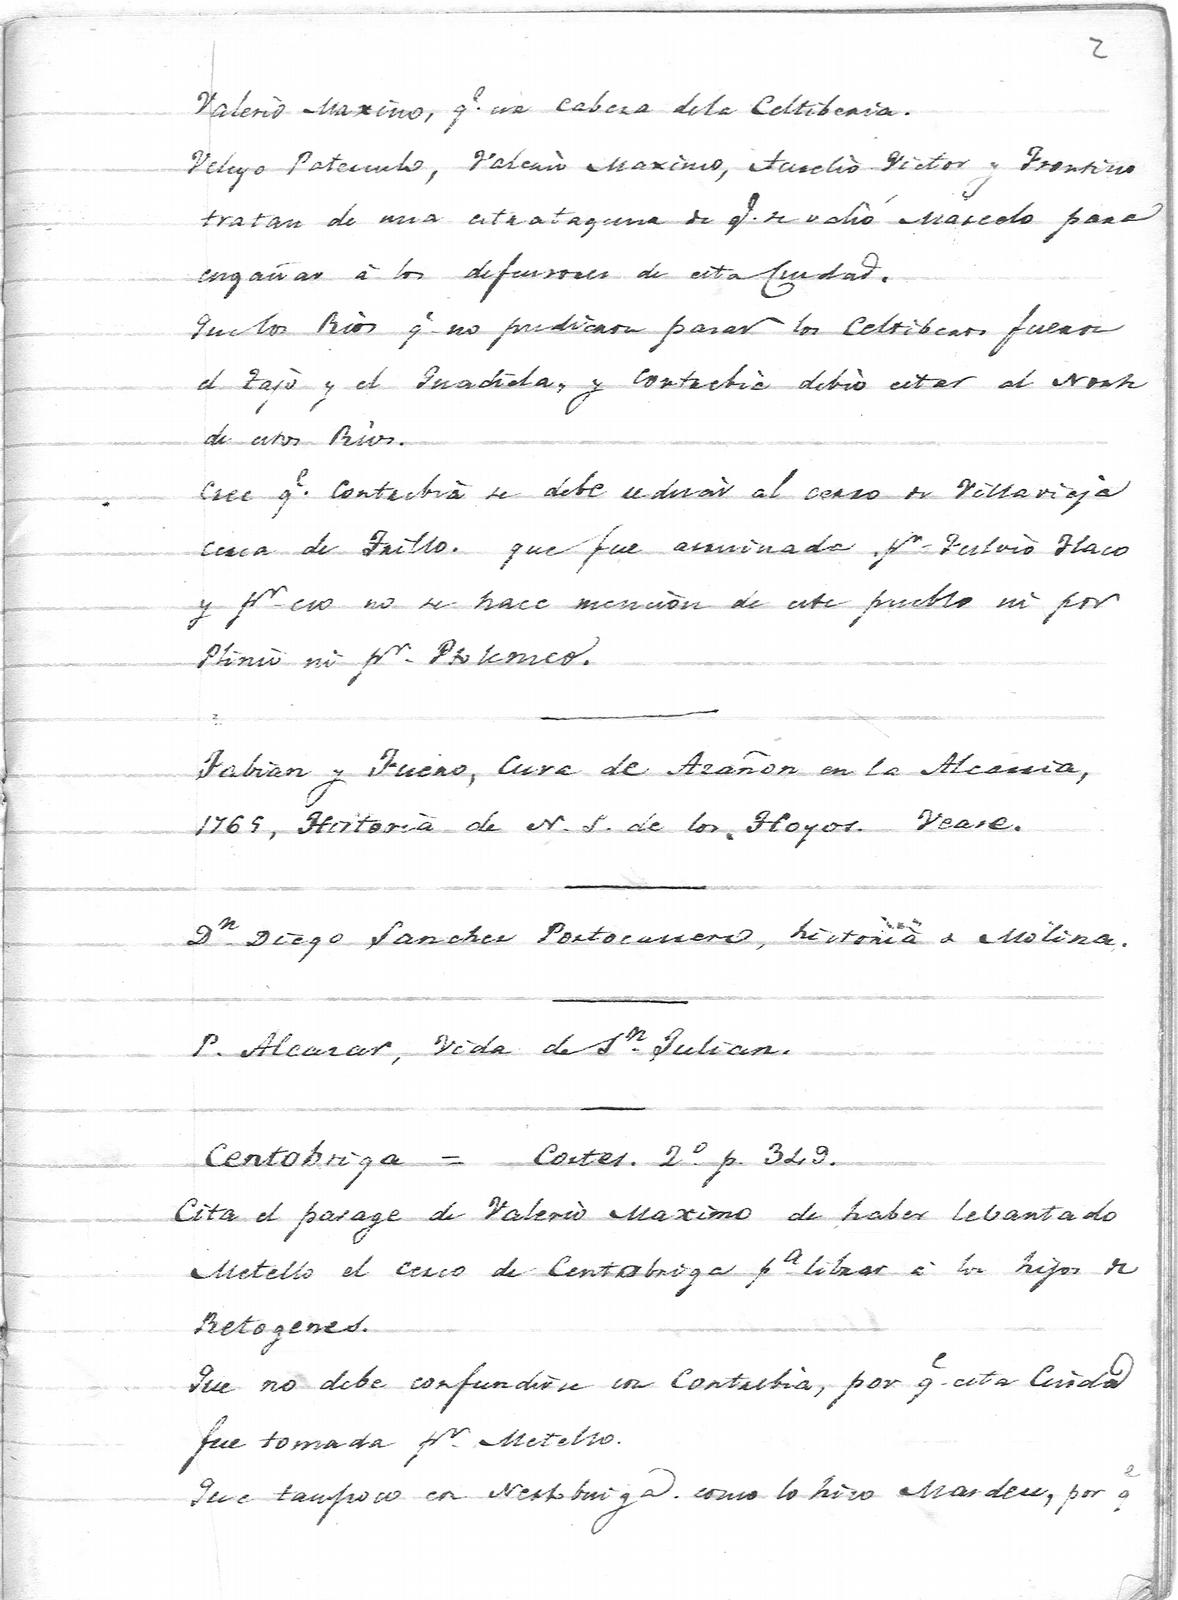 2
Valerio Maximo, q.e era cabeza dela Celtiberia.
Veleyo Paterculo, Valerio Maximo, Aurelio Victor y Frontino
tratan de una estratagema de q.e se valió Marcelo para
engañar à los defensores de esta Ciudad.
Que los Rios q.e no pudieron pasar los Celtiberos fueron
el Tajo y el Guadiela, y Contrebia debio estar al Norte
de estos Rios.
Cree q.e Contrebia se debe reducir al cerro de Villavieja
cerca de Trillo. que fue arruinada p.r Fulvio Flaco
y p.r eso no se hace mencion de este pueblo ni por
Plinio ni p.r Ptolemeo.
Fabian y Fuero, Cura de Azañon en la Alcarria,
1765, Historia de N. S. de los Hoyos. Vease.
D.n Diego Sanchez Portocarrero, historia de Molina.
P. Alcazar, Vida de S.n Julian.
Centobriga = Cortes. 2.o p. 349.
Cita el parage de Valerio Maximo de haber levantado
Metello el cerco de Centobriga p.a librar à los hijos de
Retogenes.
Que no debe confundirse con Contrebia, por q.e esta Ciudad
fue tomada p.r Metello.
Que tampoco con Nertobriga como lo hizo Mandeu, por q.e